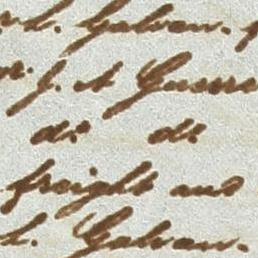 L. Galvan.
J. A Guerre
do do
freight and
L. Galvan.